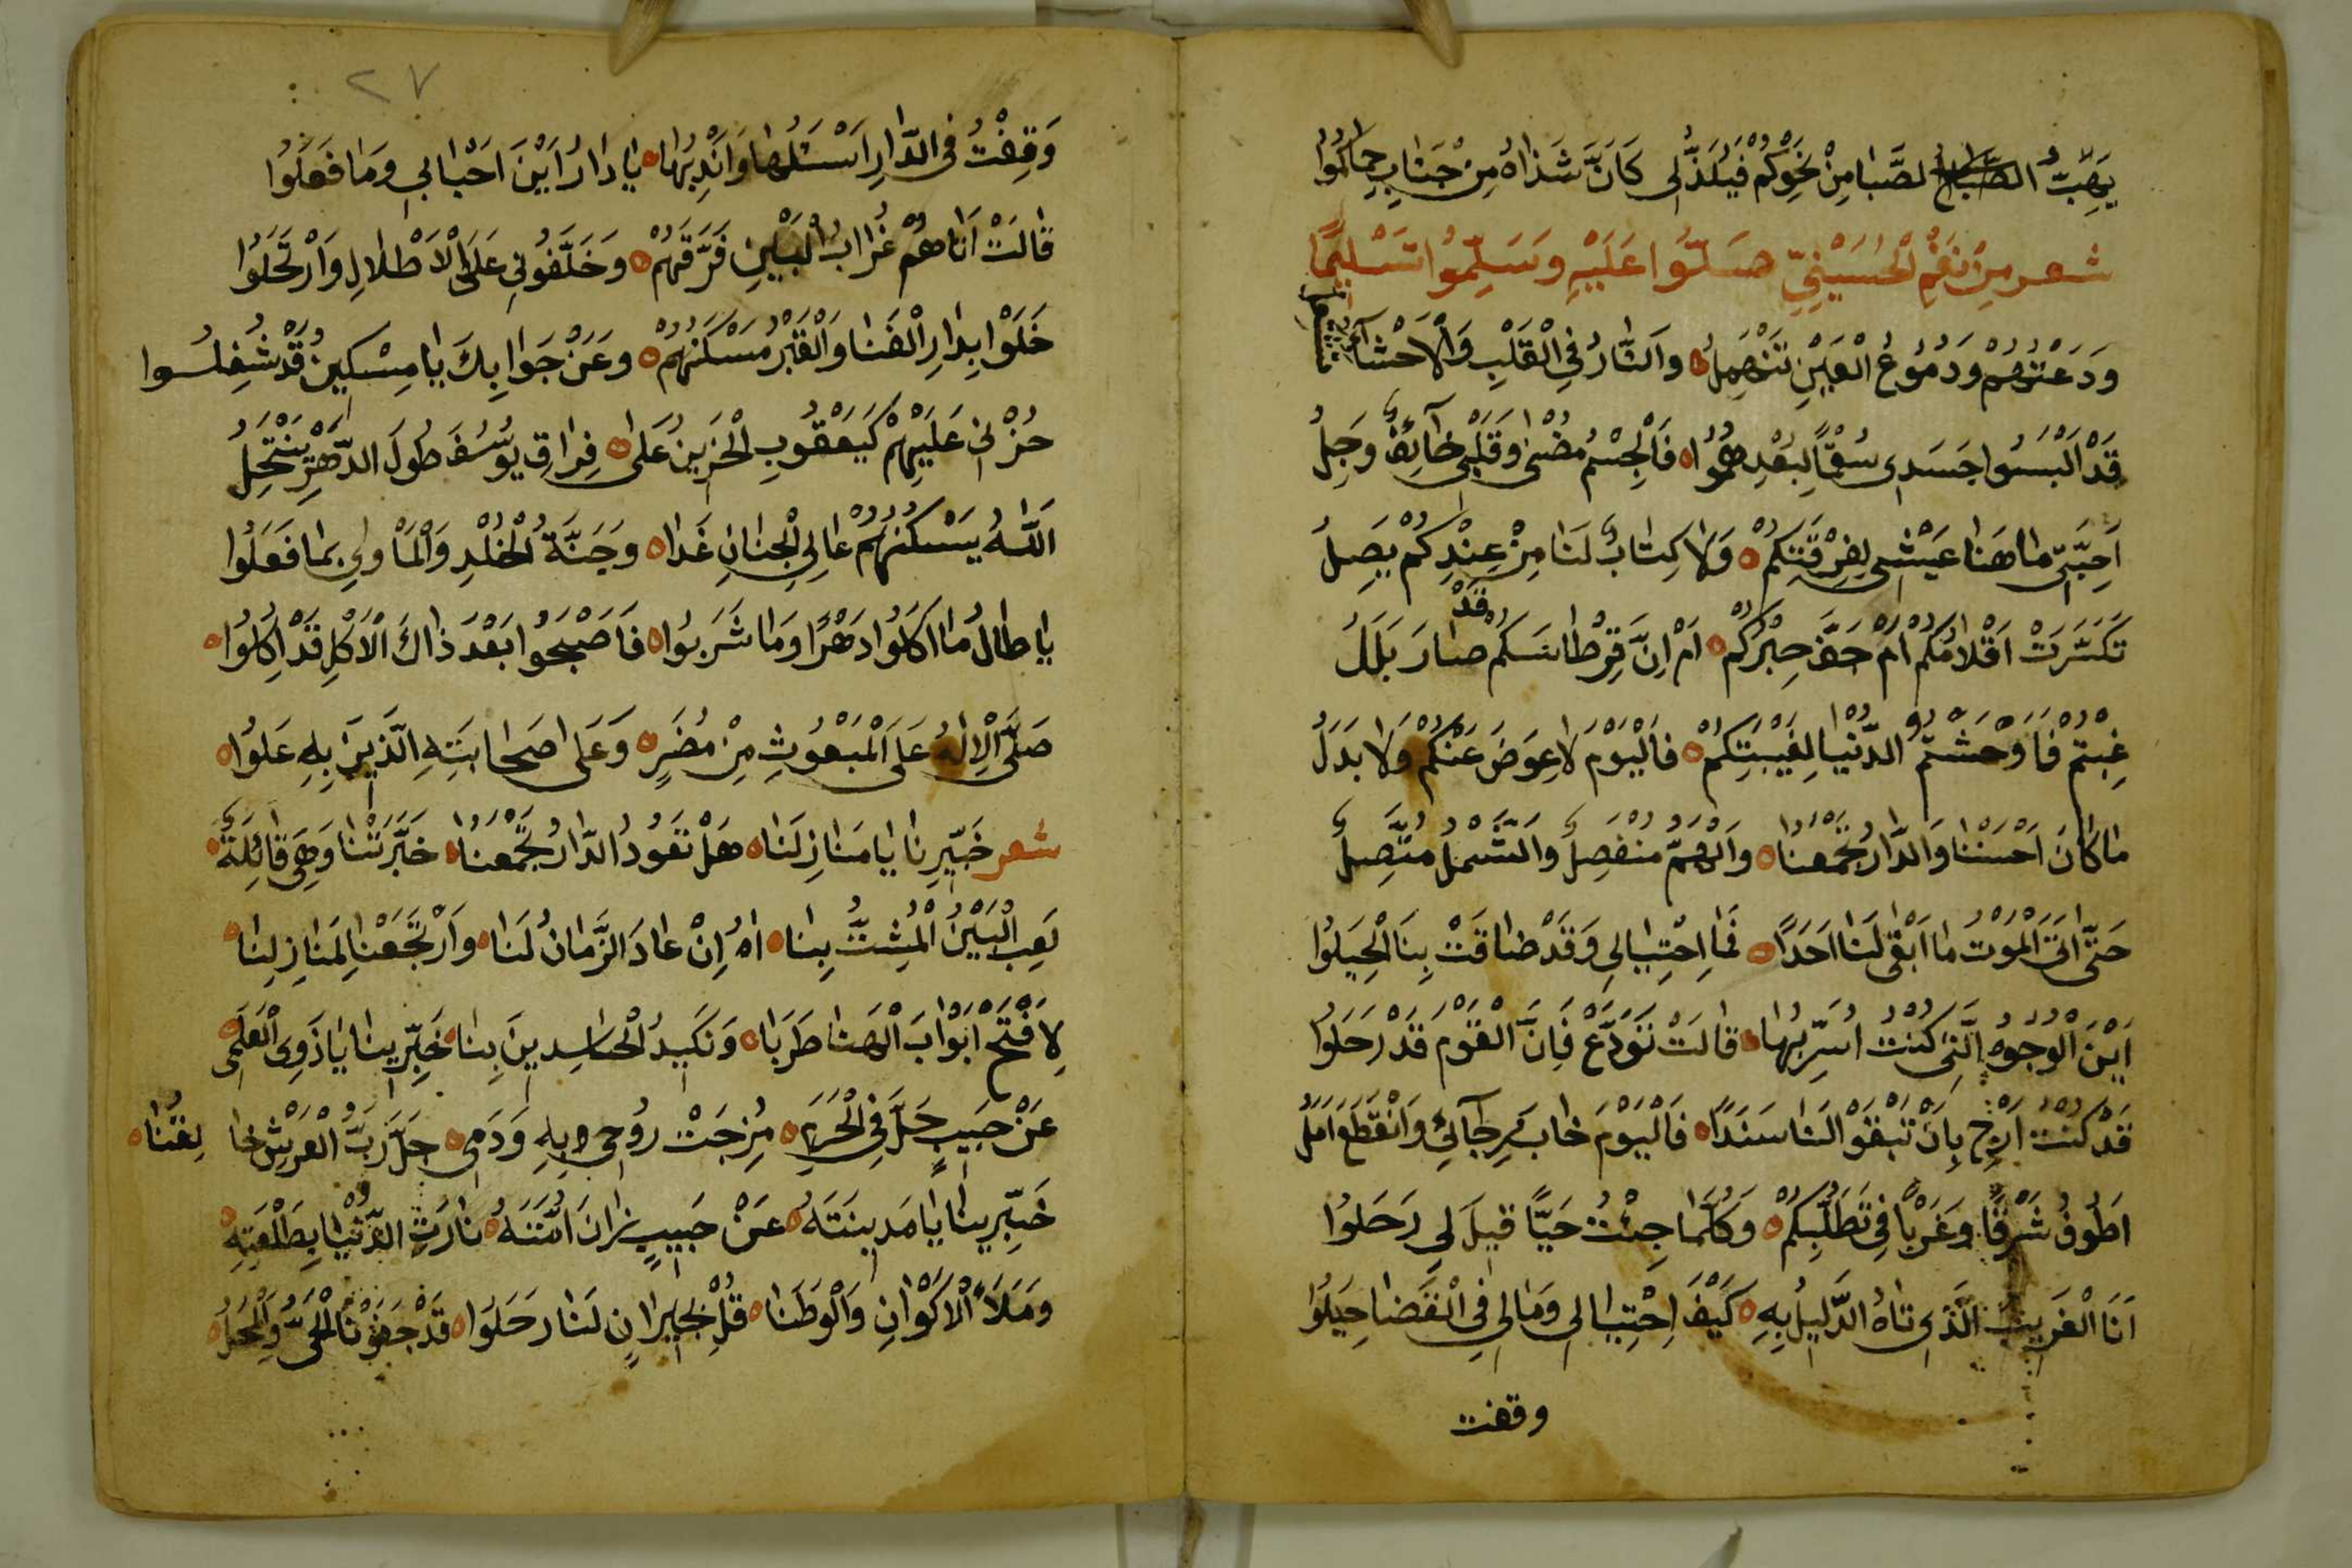 يَهِبُّ الصَّبَا مِنْ نَحْوِكُمْ فَيَلَذُّ لِى كَاَنَّ شَذَاهُ مِنْ جَنَابِ حِمَاكُمُوا
شعر مِنْ نَغَمِ الْحُسَيْنِيِّ صَلُّوا عَلَيْهِ وَسَلِّمُوا تَسْلِيمًا
وَدَعْتُهُمْ وَدُمُوعُ الْعَيْنِ تَنْهَمِلُ وَالنَّارُ فِى الْقَلْبِ وَالْاَحْشَآءِ تشتعل
قَدْ اَلْبَسُوا جَسَدِى سُقْمًا لِبُعْدِهِمُوا فَالْجِسْمُ مُضْنٰى وَقَلْبِى خَآئِفٌ وَجِلُ
اَحِبَّتِى مَا هَنَا عَيْشِى لِفِرْقَتِكُمْ وَلَا كِتَابٌ لَنَا مِنْ عِنْدِكُمْ يَصِلُ
تَكَسَّرَتْ اَقْلَامُكُمْ اَمْ جَفَّ حِبْرُكُمْ اَمْ اِنَّ قِرْطَاسَكُمْ قَدْ صَارَ بَلَلُ
غِبْتُمْ فَاَوْحَشْتُمُ الدُّنْيَا لِغَيْبَتِكُمْ فَالْيَوْمَ لَا عِوَضَ عَنْكُمْ وَلَا بَدَلُ
مَا كَانَ اَحْسَنَنَا وَالدَّارُ تَجْمَعُنَا وَالْهَمُّ مُنْفَصِلٌ وَالشَّمْلُ مُتَّصِلٌ
حَتَّى اَتَى الْمَوْتُ مَا اَبْقٰى لَنَا اَحَدًا فَمَا احْتِيَالِى وَقَدْ ضَاقَتْ بِنَا الْحِيَلُوا
اَيْنَ الْوُجُوهُ الَّتِى كُنْتُ اُسَرُّ بِهَا قَالَتْ تَوَدَّعْ فَاِنَّ الْقَوْمَ قَدْ رَحَلُوا
قَدْ كُنْتُ اَرْجُ بِاَنْ تَبْقَوْا لَنَا سَنَدًا فَالْيَوْمَ خَابَ رَجَآئِى وَانْقَطَعَ اَمَلُ
اَطُوفُ شَرْقًا وَغَرْبًا فِى تَطَلُّبِكُمْ وَكُلَّمَا جِئْتُ حَيًّا قِيلَ لِى رَحَلُوا
اَنَا الْغَرِيبُ الَّذِى تَاهَ الدَّلِيلُ بِهِ كَيْفَ احْتِيَالِى وَمَا لِى فِى الْقَضَا حِيَلُوا
وقفت
٢٧
وَقِفْتُ فِى الدَّارِ اَسْئَلُهَا وَاَنْدِبُهَا يَا دَارُ اَيْنَ اَحْبَابِى وَمَا فَعَلُوا
قَالَتْ اَنَا هُمْ غُرَابُ الْبَيْنِ فَرَّقَهُمْ وَخَلَّفُونِى عَلَى الْاَطْلَالِ وَارْتَحَلُوا
خَلَوْا بِدَارِ الْفَنَا وَالْقَبْرُ مَسْكَنُهُمْ وَعَنْ جَوَابِكَ يَا مِسْكِينُ قَدْ شُغِلُوا
حُزْنِى عَلَيْهِمْ كَيَعْقُوبِ الْحَزِينُ عَلَى فِرَاقِ يُوسُفَ طُولَ الدَّهْرِ يَنْتَحِلُ
اَللّٰهُ يَسْكُنُهُمْ عَالِى الْجِنَانِ غَدَا وَجَنَّةُ الْخُلْدِ وَالْمَاْوٰى بِمَا فَعَلُوا
يَا طَالَ مَا اَكَلُوا دَهْرًا وَمَا شَرَبُوا فَاَصْبَحُوا بَعْدَ ذَاكَ الْاَكْلِ قَدْ اُكِلُوا
صَلَّى الْاِلٰهُ عَلَى الْمَبْعُوثِ مِنْ مُضَرٍ وَعَلَى صَحَابَتِهِ الَّذِينَ بِهِ عَلَوُا
شعر خَبِّرِينَا يَا مَنَازِلَنَا هَلْ تَعُودُ الدَّارُ تَجْمَعُنَا خَبَّرَتْنَا وَهِىَ قَائِلَةٌ
لَعِبَ الْبَيْنُ الْمُشِتُّ بِنَا اهُ اِنْ عَادَ الزَّمَانُ لَنَا وَارْتَجَعْنَا لِمَنَازِلِنَا
لِاَفْتَحْ اَبْوَابَ الْهَنَا طَرَبَا وَنَكَيِدُ الْحَاسِدِينَ بِنَا خَبِّرِينَا يَا ذَوِى الْعَلَمِى
عَنْ حَبِيبٍ حَلَّ فِى الْحَرَمِ مُزِجَتْ رُوحِى بِهِ وَدَمِى جَلَّ رَبُّ الْعَرْشِ خَالِقُنَا
خَبِّرِينَا يَا مَدِينَتَهُ عَنْ حَبِيبٍ زَانَ اُمَّتَهُ نَارَتِ الدُّنْيَا بِطَلْعَتِهِ
وَمَلَأَ الْاَكْوَانِ وَالْوَطَنَا قُلْ لِجِيرَانٍ لَنَا رَحَلَوُا قَدْ جَفَوْنَا